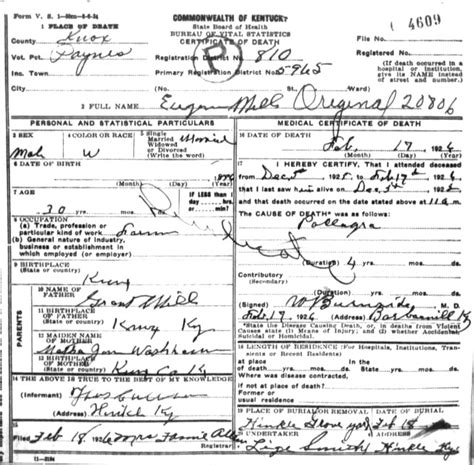 Form V. S. 1
COMMONWEALTH OF KENTUCKY
State Board of Health
BUREAU OF VITAL STATISTICS
CERTIFICATE OF DEATH
4609
1 PLACE OF DEATH
County Knox
Vot. Pct. Paynes
Inc. Town
City
File No.
Registered No.
Registration District No. 810
Primary Registration District No. 5965
(No. St. Ward)
(If death occurred in a hospital or institution, give its NAME instead of street and number.)
2 FULL NAME Eugene Mills Original 20806
PERSONAL AND STATISTICAL PARTICULARS
3 SEX Male
4 COLOR OR RACE W
5 Single Married Widowed or Divorced (Write the word) Married
6 DATE OF BIRTH
(Month) (Day) (Year)
7 AGE 30 yrs. mos. ds.
IF LESS than 1 day hrs. or min.
8 OCCUPATION
(a) Trade, profession or particular kind of work Farm
(b) General nature of industry, business or establishment in which employed (or employer)
9 BIRTHPLACE
(State or country) Knox
PARENTS
10 NAME OF FATHER Grant Mills
11 BIRTHPLACE OF FATHER
(State or country) Knox Ky
12 MAIDEN NAME OF MOTHER
13 BIRTHPLACE OF MOTHER
(State or country) Knox Co Ky
14 THE ABOVE IS TRUE TO THE BEST OF MY KNOWLEDGE
(Informant)
(Address) Ky
15
Filed Feb 18 1926 Mrs Fannie
MEDICAL CERTIFICATE OF DEATH
16 DATE OF DEATH Feb. 17 1926
(Month) (Day) (Year)
17 I HEREBY CERTIFY, That I attended deceased
from Dec 5th 1925 to Feb 17th 1926
that I last saw him alive on Dec 5th
and that death occurred on the date stated above at 11 a m
The CAUSE OF DEATH was as follows:
Pellagra
(Duration) 4 yrs. mos. ds.
Contributory
(Secondary)
(Duration) yrs. mos. ds.
(Signed) W Burnside M. D.
Feb. 17 1926 (Address) Barbourville Ky
*State the Disease Causing Death, or, in deaths from Violent Causes state (1) Means of Injury; and (2) whether Accidental, Suicidal or Homicidal.
18 LENGTH OF RESIDENCE (For Hospitals, Institutions, Transients or Recent Residents)
At place of death yrs. mos. ds. State yrs. mos. ds.
Where was disease contracted,
if not at place of death?
Former or usual residence
19 PLACE OF BURIAL OR REMOVAL
DATE OF BURIAL
Hinkle Grave yard Feb 18
20 UNDERTAKER
(Address)
Smith Hinkle Ky